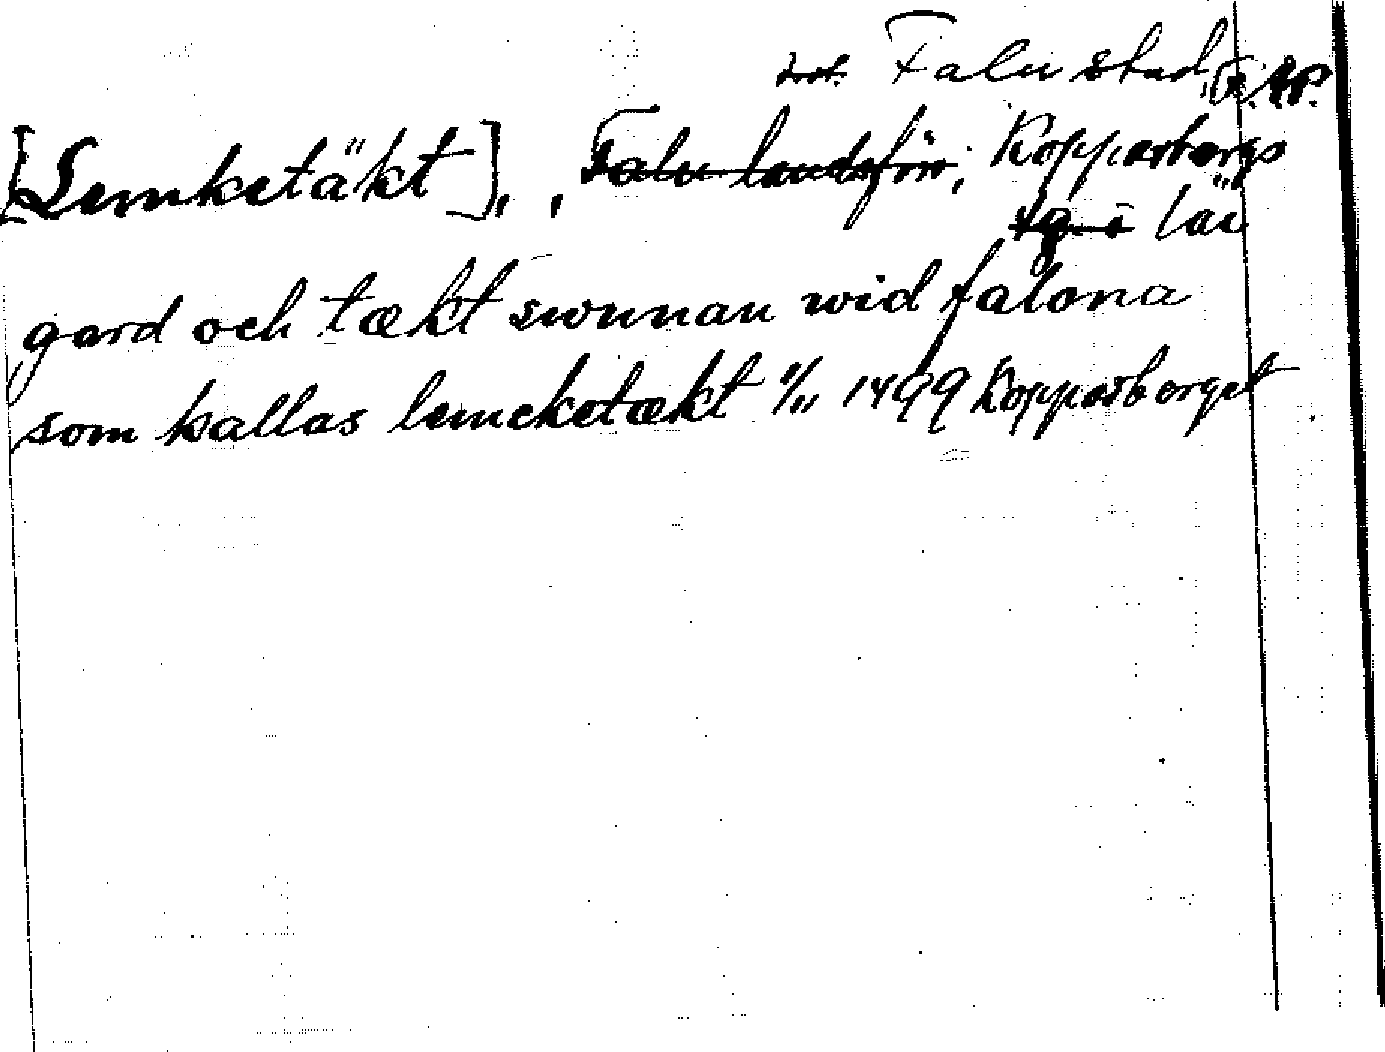 Falu stad,
[Lemketäkt], , Falu landsförs., Kopparbergs
län
gard och tækt swnnan wid falona
som kallas lemcketækt 1499 Kopparberget